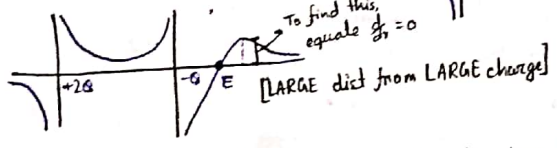 To find this,
equate dy = 0
+2Q
-Q
E
[LARGE dist from LARGE charge]